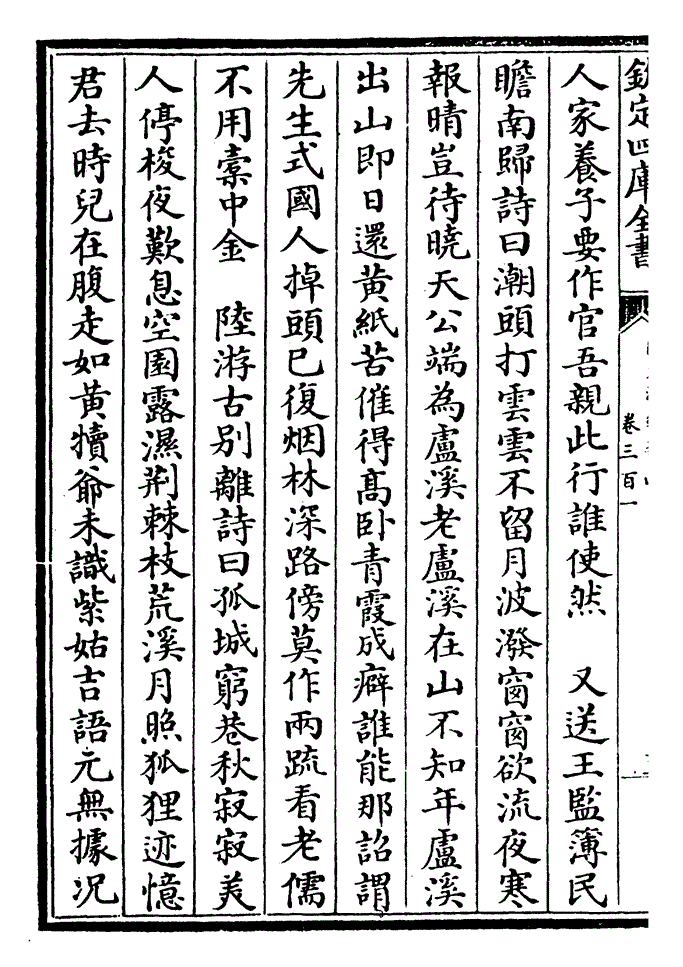 欽定四庫全書
卷三百一
人家養子要作官吾親此行誰使然　又送王監簿民
瞻南歸詩曰潮頭打雲雲不留月波潑窗窗欲流夜寒
報晴豈待曉天公端為盧溪老盧溪在山不知年盧溪
出山即日還黃紙苦催得高卧青霞成癖誰能那詔謂
先生式國人掉頭已復烟林深路傍莫作兩疏看老儒
不用橐中金　陸游古別離詩曰孤城窮巷秋寂寂美
人停梭夜歎息空園露濕荆棘枝荒溪月照狐狸迹憶
君去時兒在腹走如黃犢爺未識紫姑吉語元無據况